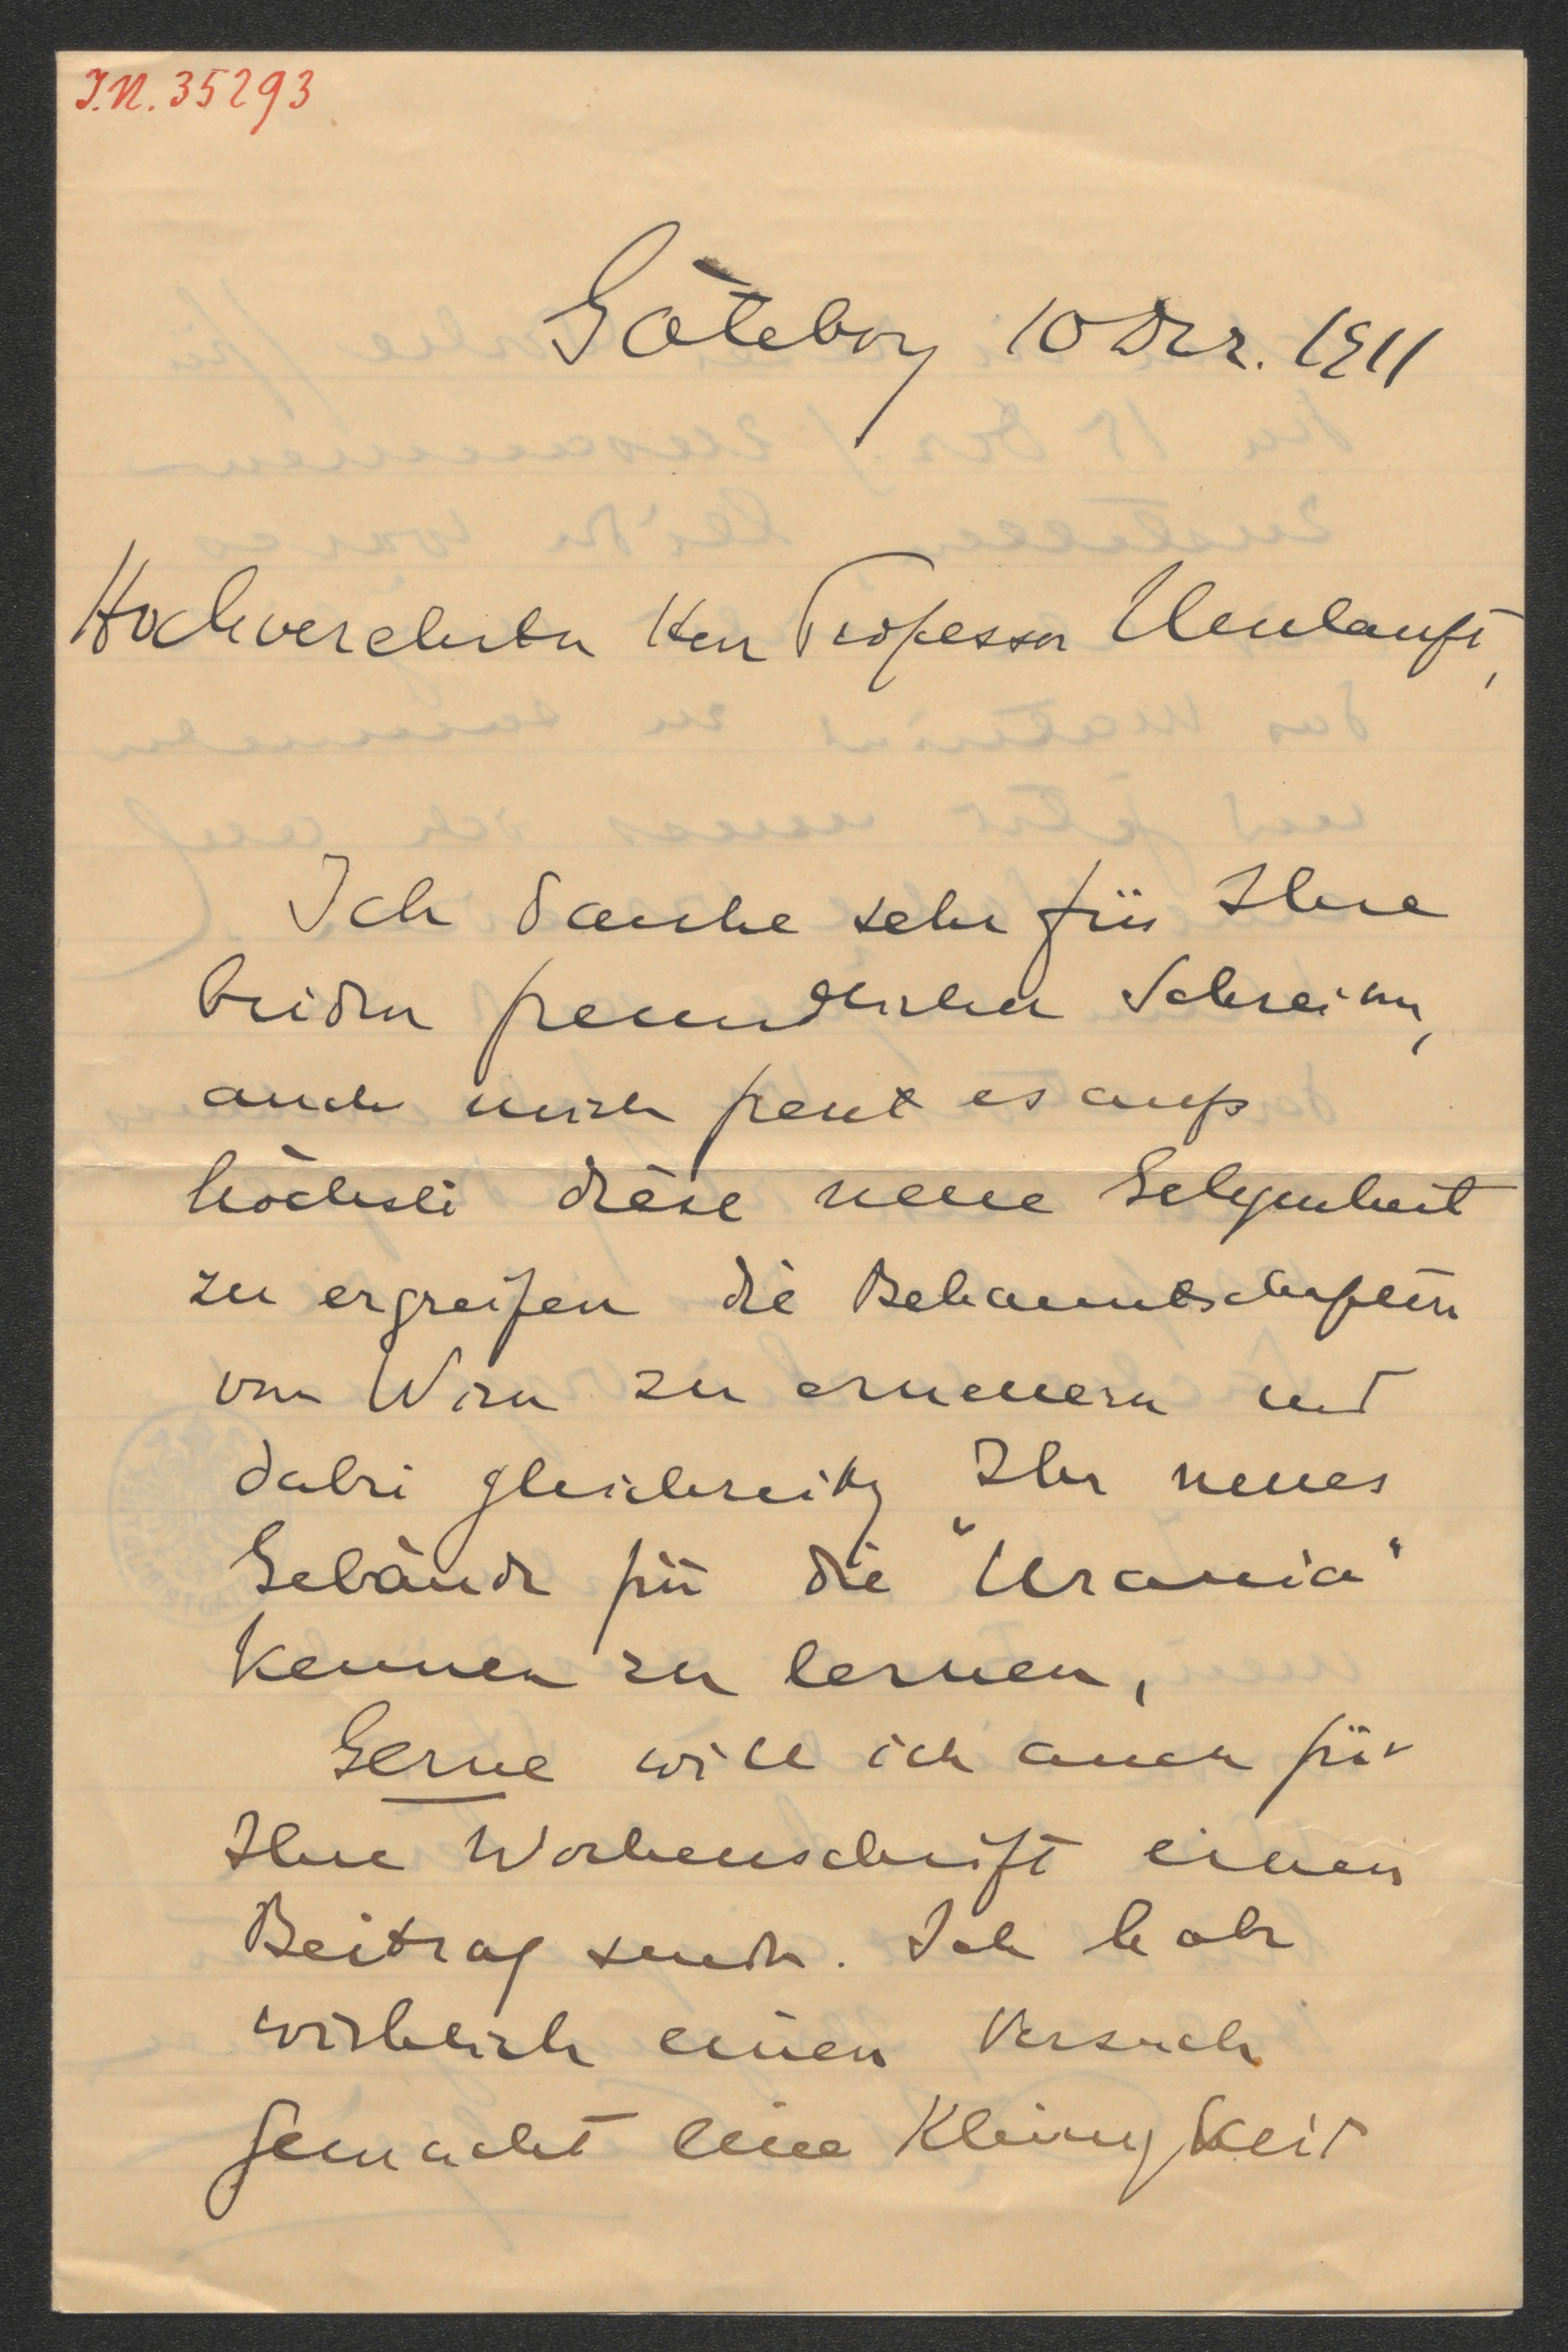 J.N. 35293
Göteborg 10 Dez. 1911
Hochverehrter Herr Professor Umlauft,
Ich danke sehr für Ihre
beiden freundlichen Schreiben,
auch mich freut es aufs
höchste diese neue Gelegenheit
zu ergreifen die Bekanntschaften
von Wien zu erneuern und
dabei gleichzeitig Ihr neues
Gebäude für die "Urania"
kennen zu lernen,
Gerne will ich auch für
Ihre Wochenschrift einen
Beitrag senden. Ich habe
wirklich einen Versuch
gemacht eine Kleinigkeit